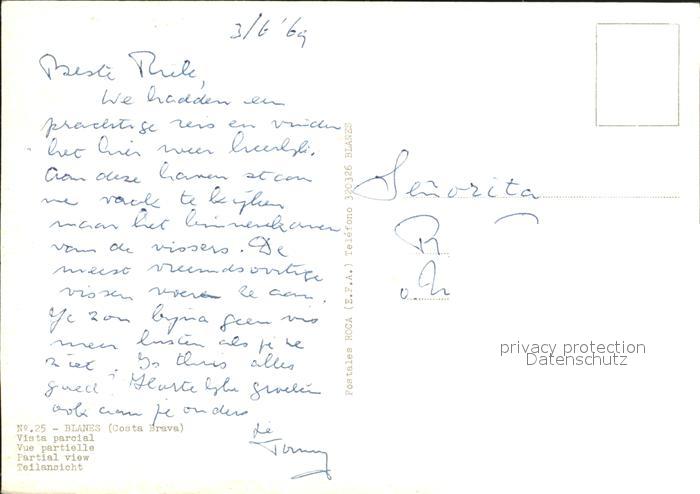 3/6 '69
Beste Riek,
We hadden een
prachtige reis en vinden
het hier weer heerlijk.
Aan deze haven staan
we vaak te kijken
naar het binnenkomen
van de vissers. De
meest vreemdsoortige
vissen voeren ze aan.
Je zou bijna geen vis
meer lusten als je ze
ziet. Is thuis alles
goed? Hartelijke groeten
ook aan je ouders
Tonny
Nº.25 - BLANES (Costa Brava)
Vista parcial
Vue partielle
Partial view
Teilansicht
Postales ROCA (E.F.A.) Teléfono 330326 BLANES
Señorita
R
privacy protection
Datenschutz